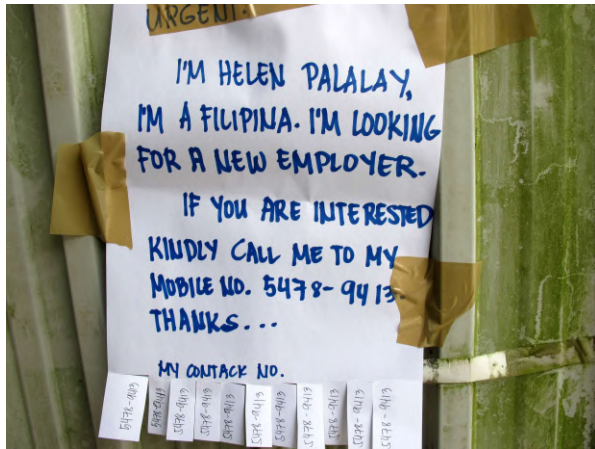 URGENT.
I'M HELEN PALALAY,
I'M A FILIPINA. I'M LOOKING
FOR A NEW EMPLOYER.
IF YOU ARE INTERESTED
KINDLY CALL ME TO MY
MOBILE NO. 5478-9413.
THANKS...
MY CONTACK NO.
5478-9413
5478-9413
5478-9413
5478-9413
5478-9413
5478-9413
5478-9413
5478-9413
5478-9413
5478-9413
5478-9413